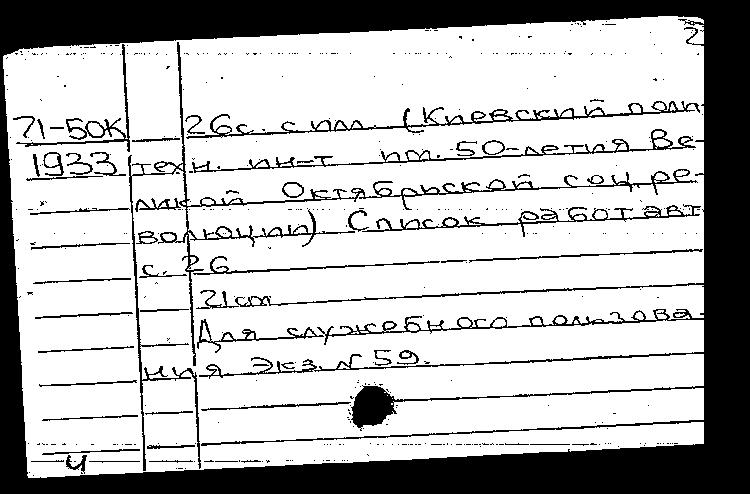 2
71-50К 26с. с илл. (Киевский поли-
1933 техн. ин-т им. 50-летия Ве-
ликой Октябрьской соц. ре-
волюции). Список работ авт.
с. 26
21см
Для служебного пользова-
ния. Экз. N 59.
4